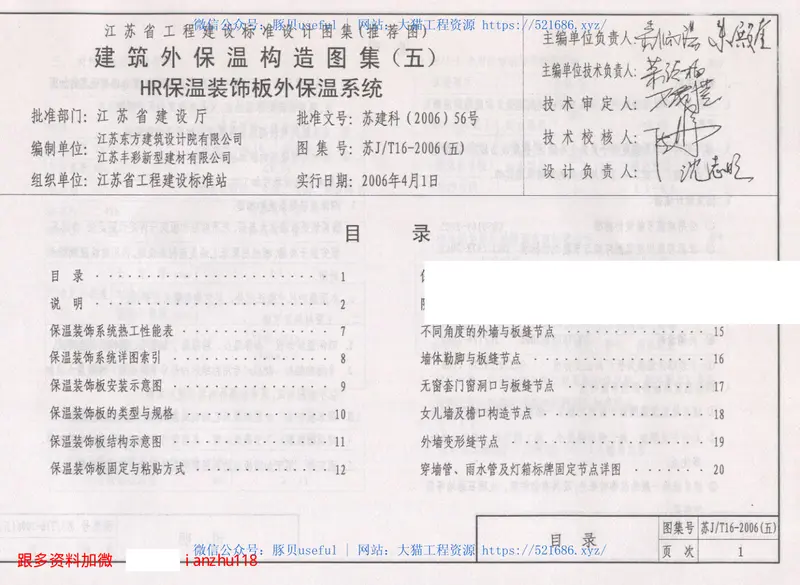 微信公众号：豚贝useful | 网站：大猫工程资源 https://521686.xyz/
江苏省工程建设标准设计图集(推荐图)
建筑外保温构造图集(五)
HR保温装饰板外保温系统
批准部门：江苏省建设厅
批准文号：苏建科(2006)56号
编制单位：江苏东方建筑设计院有限公司
江苏丰彩新型建材有限公司
图集号：苏J/T16-2006(五)
组织单位：江苏省工程建设标准站
实行日期：2006年4月1日
主编单位负责人：
主编单位技术负责人：
技术审定人：
技术校核人：
设计负责人：沈志明
目 录
目 录 1
说 明 2
保温装饰系统热工性能表 7
保温装饰系统详图索引 8
保温装饰板安装示意图 9
保温装饰板的类型与规格 10
保温装饰板结构示意图 11
保温装饰板固定与粘贴方式 12
不同角度的外墙与板缝节点 15
墙体勒脚与板缝节点 16
无窗套门窗洞口与板缝节点 17
女儿墙及檐口构造节点 18
外墙变形缝节点 19
穿墙管、雨水管及灯箱标牌固定节点详图 20
目 录
图集号 苏J/T16-2006(五)
页 次 1
微信公众号：豚贝useful | 网站：大猫工程资源 https://521686.xyz/
跟多资料加微 ianzhu118